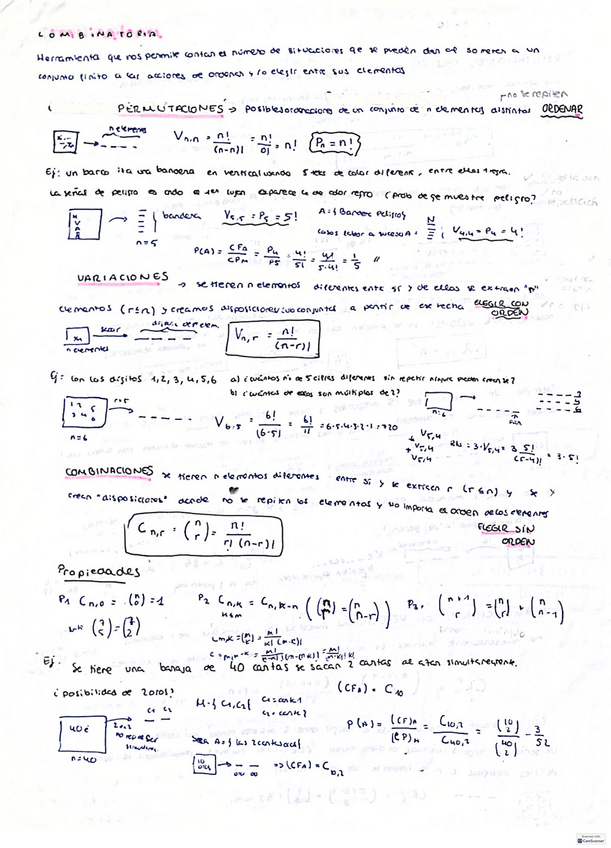 COMBINATORIA
Herramienta que nos permite contar el número de situaciones que se pueden dar al someter a un
conjunto finito a las acciones de ordenar y/o elegir entre sus elementos
no se repiten
PERMUTACIONES → posibles ordenaciones de un conjunto de n elementos distintos ORDENAR
n elementos
V n,n = n!/(n-n)! = n!/0! = n! Pn = n!
Ej: un barco iza una bandera en vertical usando 5 telas de color diferente, entre ellas 1 negra.
La señal de peligro es cndo el 1er lugar aparece la de color negro ¿prob de qe muestre peligro?
bandera V5,5 = P5 = 5! A = {Bandera peligro}
n=5 casos favor a suceso A = N ; V4,4 = P4 = 4!
P(A) = CFA/CPM = P4/P5 = 4!/5! = 4!/5·4! = 1/5 //
VARIACIONES → se tienen n elementos diferentes entre sí y de ellos se extraen "r"
elementos (r≤n) y creamos disposiciones/subconjuntos a partir de ese fecha ELEGIR CON
ORDEN
n elementos V n,r = n!/(n-r)!
Ej: con los dígitos 1,2,3,4,5,6 a) ¿cuántos nos de 5 cifras diferentes sin repetir ninguna pueden crearse?
b) ¿cuántos de ellos son múltiplos de 2?
1 2 5
3 4 6
r=5
n=6
V6,5 = 6!/(6-5)! = 6!/1! = 6·5·4·3·2·1 = 720
n=6
V5,4
+ V5,4
+ V5,4
= 3·V5,4 = 3 5!/(5-4)! = 3·5!
COMBINACIONES se tienen n elementos diferentes entre sí y se extraen r (r≤n) y se
crean "disposiciones" donde no se repiten los elementos y no importa el orden de los elementos
ELEGIR SIN
ORDEN
C n,r = (n r) = n!/r!(n-r)!
Propiedades
P1 C n,0 = (n 0) = 1 P2 C n,k = C n,k-n ((n r) = (n n-r)) P3. (n+1 r) = (n r) + (n n-1)
(7 5) = (7 2)
Ej. Se tiene una baraja de 40 cartas se sacan 2 cartas al azar simultáneamente.
¿posibilidad de 2 oros?
(CFA) = C10
40 c
n=40
C1 C2
M = {C1,C2} C1 = carta 1
C2 = carta 2
P(A) = (CF)A/(CP)M = C10,2/C40,2 = (10 2)/(40 2) = 3/52
Sea A = {las 2 cartas oro}
10 oros → (CFA) = C10,2
Scanned with
CamScanner